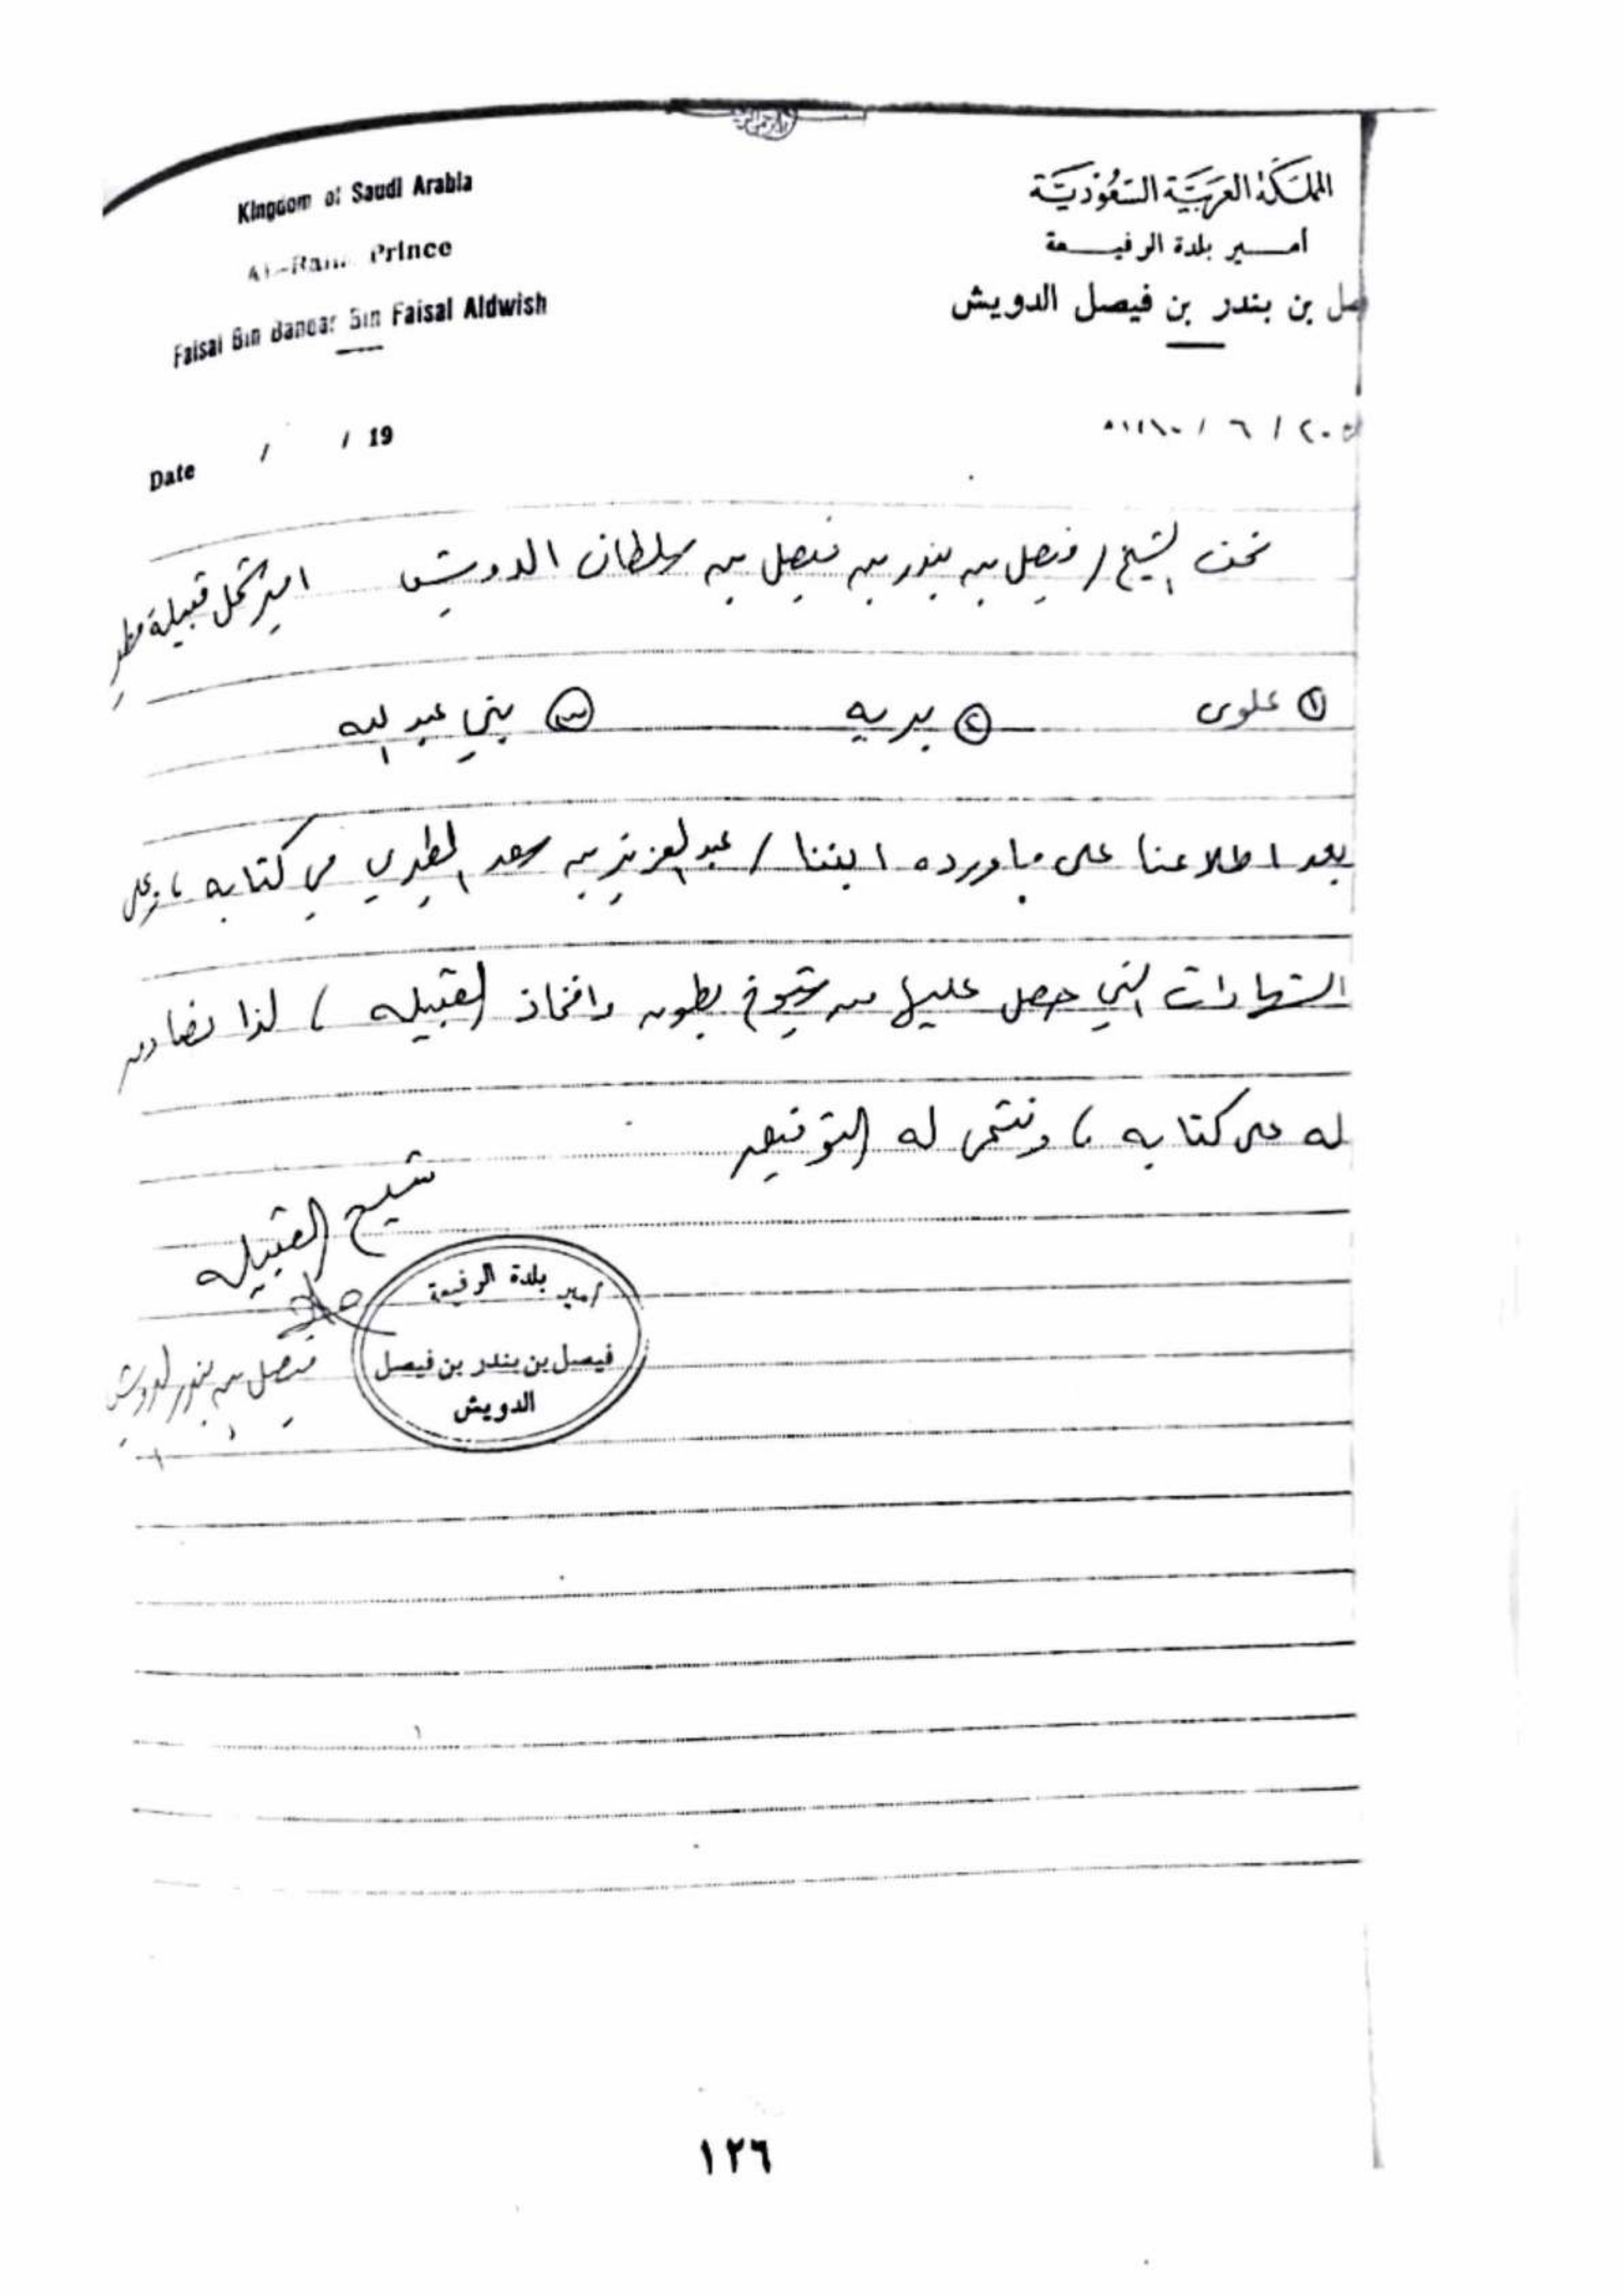 Kingdom of Saudi Arabia
Prince
Faisal Bin Bandar Bin Faisal Aldwish
Date / / 19
المملكة العربية السعودية
أمير بلدة الرفيعة
بن بندر بن فيصل الدويش
٢٠ / ٦ /
نحن الشيخ / فيصل بن بندر بن فيصل بن سلطان الدويش امير شمل قبيلة مطير
١ علوى ٢ بريه ٣ بني عبد الله
بعد اطلاعنا على ما ورده ابننا / عبد العزيز بن سعد المطيري في كتابه ، وعلى
الشهادات التي حصل عليها من شيوخ بطون وافخاذ القبيله ، لذا نصادق
له على كتابه ، ونتمنى له التوفيق
شيخ القبيله
فيصل بن بندر الدويش
أمير بلدة الرفيعة
فيصل بن بندر بن فيصل
الدويش
١٢٦